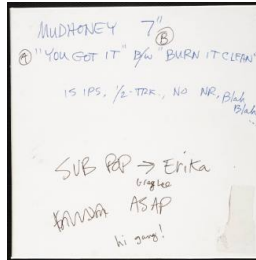 MUDHONEY 7"
Ⓐ "YOU GOT IT" B/W Ⓑ "BURN IT CLEAN"
15 IPS, 1/2-TRK, NO NR, Blah Blah
SUB POP → Erika
ASAP
hi gang!